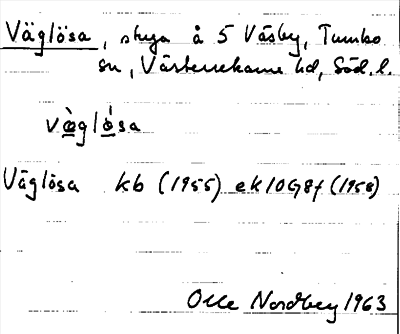 Väglösa, stuga å 5 Väsby, Tumbo
sn, Västerrekarne hd, Söd. l.
vä̀glö́sa
Väglösa kb (1955) ek 10G8f (1958)
Olle Nordberg 1963